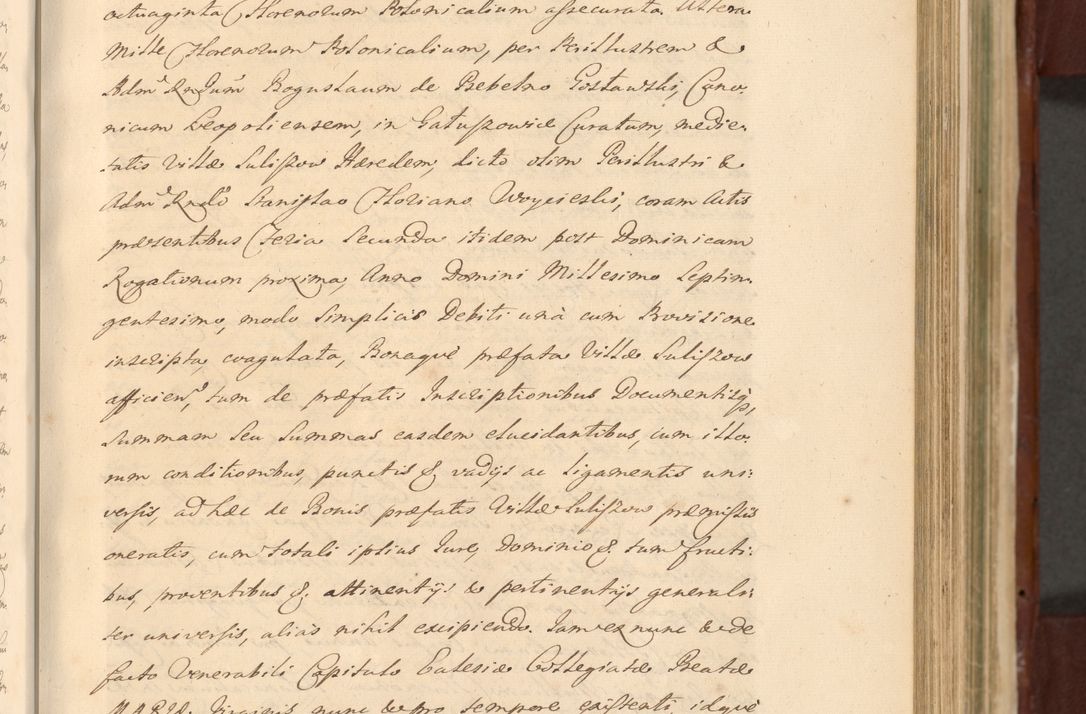 octuaginta Florenorum Polonicalium assecurata. Altera
Mille Florenorum Polonicalium, per Perillustrem &
Adm Rndum Boguslaum de Bebelno Gosławski, Cano:
nicum Leopoliensem, in Gałuszowice Curatum, medie:
tatis Villæ Suliszow Hæredem, dicto olim Perillustri &
Adm Rndo Stanislao Floriano Woyciecki, coram Actis
præsentibus Feria Secunda itidem post Dominicam
Rogationum proxima, Anno Domini Millesimo Septin:
gentesimo, modo Simplicis Debiti unà cum Provisione
inscripta, coagulata, Bonaquè præfata Villæ Suliszow
afficien, tum de præfatis Inscriptionibus Documentisq,
Summam Seu Summas easdem elucidantibus, cum illo:
rum conditionibus, punctis &, vadijs ac Ligamentis uni:
versis, ad hæc de Bonis præfatis Villæ Suliszow præmissis
oneratis, cum totali ipsius Jure, Dominio &, tum fructi:
bus, proventibus &, attinentijs & pertinentijs genera:
ter universis, alias nihil excipiendo. Jam ex nunc & de
facto Venerabili Capitulo Ecclesiæ Collegiatæ Beatæ
MARIÆ Virginis nunc & pro tempore existenti, idquè